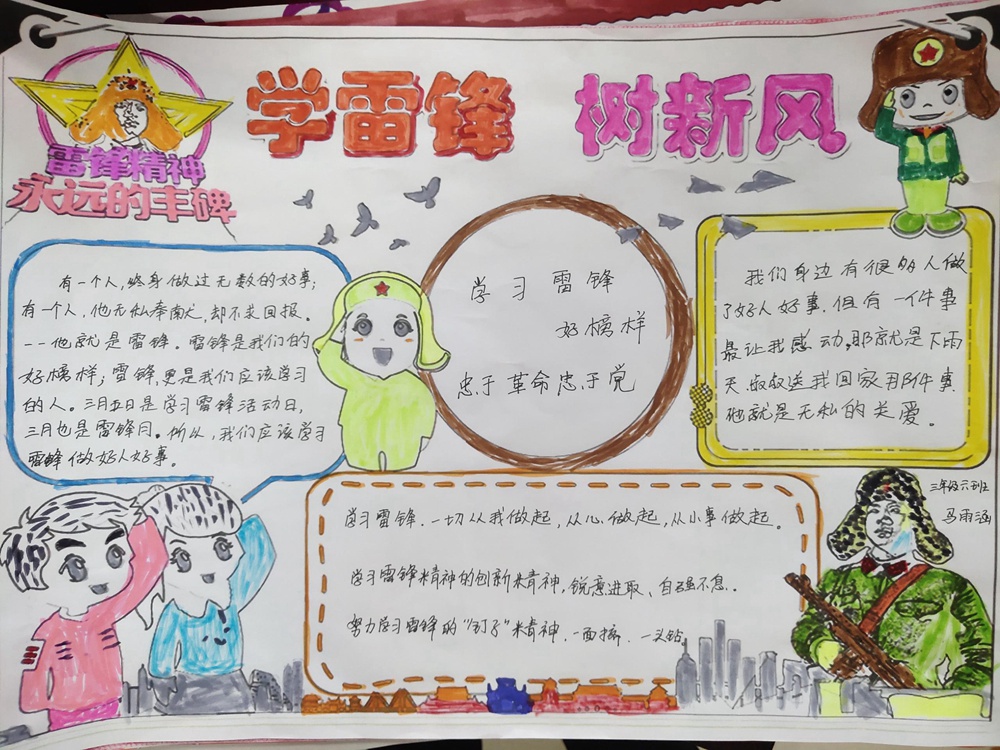 学雷锋 树新风
雷锋精神
永远的丰碑
有一个人,终身做过无数的好事;
有一个人,他无私奉献,却不求回报。
--他就是雷锋。雷锋是我们的
好榜样;雷锋,更是我们应该学习
的人。三月五日是学习雷锋活动日,
三月也是雷锋月。所以,我们应该学习
雷锋做好人好事。
学习雷锋
好榜样
忠于革命忠于党
我们身边有很多人做
了好人好事.但有一件事
最让我感动,那就是下雨
天.叔叔送我回家那件事.
他就是无私的关爱。
三年级六班
马雨涵
学习雷锋.一切从我做起,从心做起,从小事做起。
学习雷锋精神的创新精神,锐意进取、自强不息..
努力学习雷锋的"钉子"精神.一面挤.一头钻